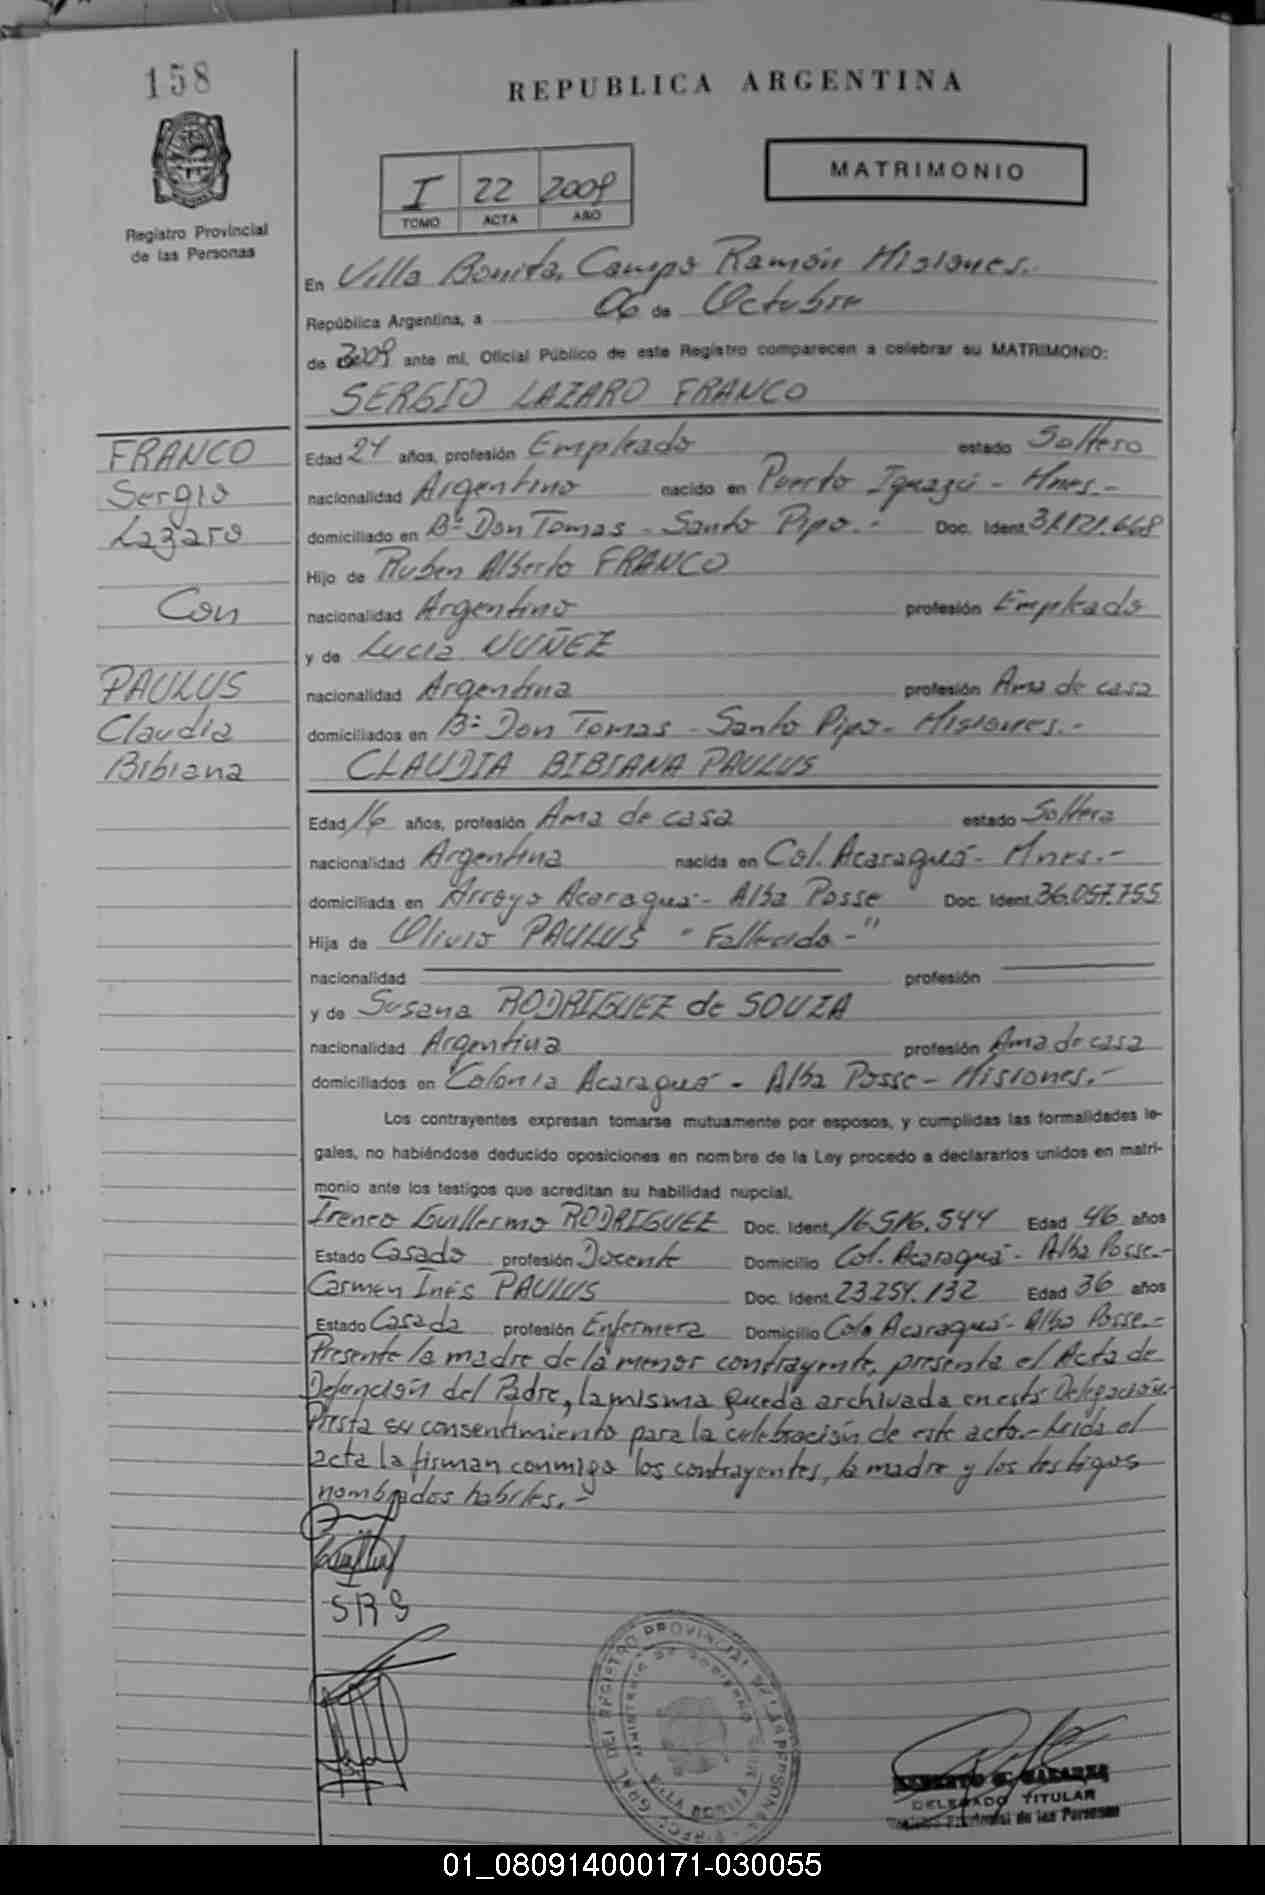 158
REPUBLICA ARGENTINA
MATRIMONIO
I 22 2009
TOMO ACTA AÑO
Registro Provincial
de las Personas
En Villa Bonita, Campo Ramón Misiones.-
República Argentina, a 06 de Octubre
de 2009 ante mí, Oficial Público de este Registro comparecen a celebrar su MATRIMONIO:
SERGIO LAZARO FRANCO
FRANCO
Sergio
Lazaro
Con
PAULUS
Claudia
Bibiana
Edad 24 años, profesión Empleado estado Soltero
nacionalidad Argentino nacido en Puerto Iguazú - Mnes.-
domiciliado en Bº Don Tomas - Santo Pipo.- Doc. Ident. 31.121.668
Hijo de Ruben Alberto FRANCO
nacionalidad Argentino profesión Empleado
y de Lucia NUÑEZ
nacionalidad Argentina profesión Ama de casa
domiciliados en Bº Don Tomas - Santo Pipo - Misiones.-
CLAUDIA BIBIANA PAULUS
Edad 16 años, profesión Ama de casa estado Soltera
nacionalidad Argentina nacida en Col. Acaraguá - Mnes.-
domiciliada en Arroyo Acaraguá - Alba Posse Doc. Ident. 36.057.755
Hija de Olivio PAULUS "Fallecido-"
nacionalidad profesión
y de Susana RODRIGUEZ de SOUZA
nacionalidad Argentina profesión Ama de casa
domiciliados en Colonia Acaraguá - Alba Posse - Misiones.-
Los contrayentes expresan tomarse mutuamente por esposos, y cumplidas las formalidades le-
gales, no habiéndose deducido oposiciones en nombre de la Ley procedo a declararlos unidos en matri-
monio ante los testigos que acreditan su habilidad nupcial.
Ireneo Guillermo RODRIGUEZ Doc. Ident. 16.516.544 Edad 46 años
Estado Casado profesión Docente Domicilio Col. Acaraguá - Alba Posse.-
Carmen Inés PAULUS Doc. Ident. 23.254.132 Edad 36 años
Estado Casada profesión Enfermera Domicilio Col. Acaraguá - Alba Posse.-
Presente la madre de la menor contrayente, presenta el Acta de
Defunción del Padre, la misma queda archivada en esta Delegación.
Presta su consentimiento para la celebración de este acto.- Leida el
acta la firman conmigo los contrayentes, la madre y los testigos
nombrados habiles.-
SRS
DELEGADO TITULAR
Registro Provincial de las Personas
01_080914000171-030055